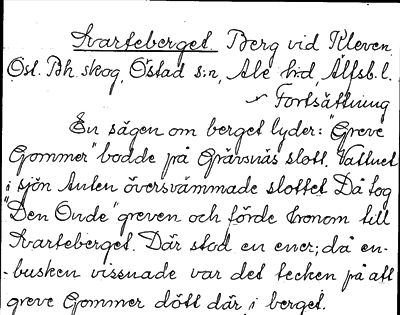 Svarteberget. Berg vid Kleven
Öst. Bh. skog, Östad s:n, Ale hd, Älfsb. l.
Fortsättning
En sägen om berget lyder: "Greve
Gommer" bodde på Grävsnäs slott. Vattnet
i sjön Anten översvämmade slottet Då tog
"Den Onde" greven och förde honom till
Svarteberget. Där stod en ener; då en-
-busken vissnade var det tecken på att
greve Gommer dött där i berget.